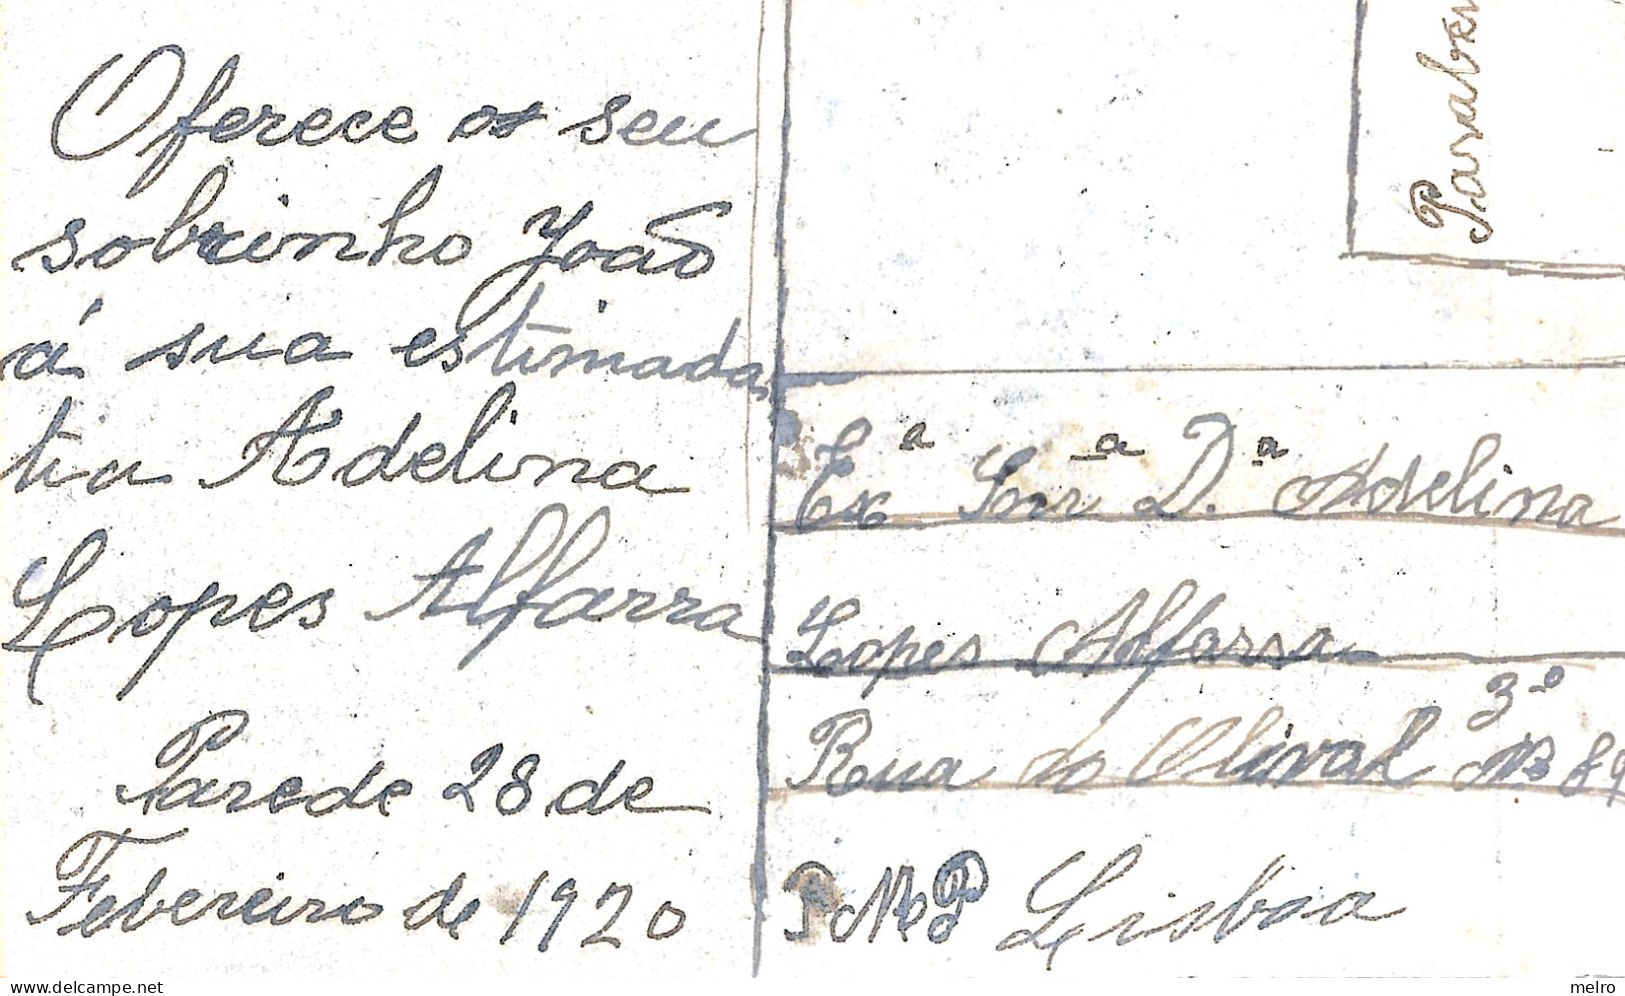 Oferece os seu
sobrinho João
á sua estimada
tia Adelina
Lopes Alfarra
Parede 28 de
Febereiro de 1920
Paraben
Exª Snrª D.ª Adelina
Lopes Alfarra
Rua do Olival Nº 89 3º
Lisboa
delcampe.net
melro